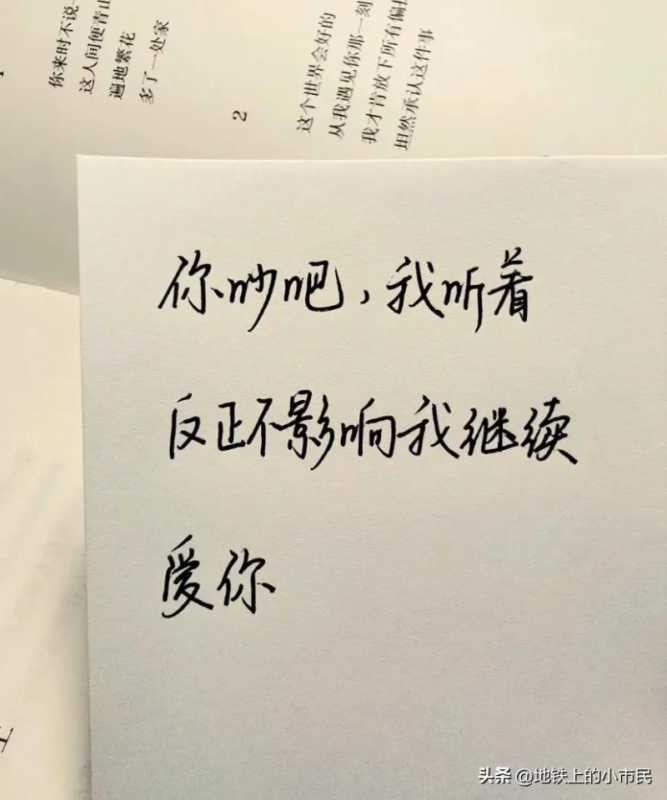 你来时不说一
这人间便青山
遍地繁花
多了一处家
2
这个世界会好的
从我遇见你那一刻
我才肯放下所有偏
坦然承认这件事
你吵吧，我听着
反正不影响我继续
爱你
头条 @地铁上的小市民